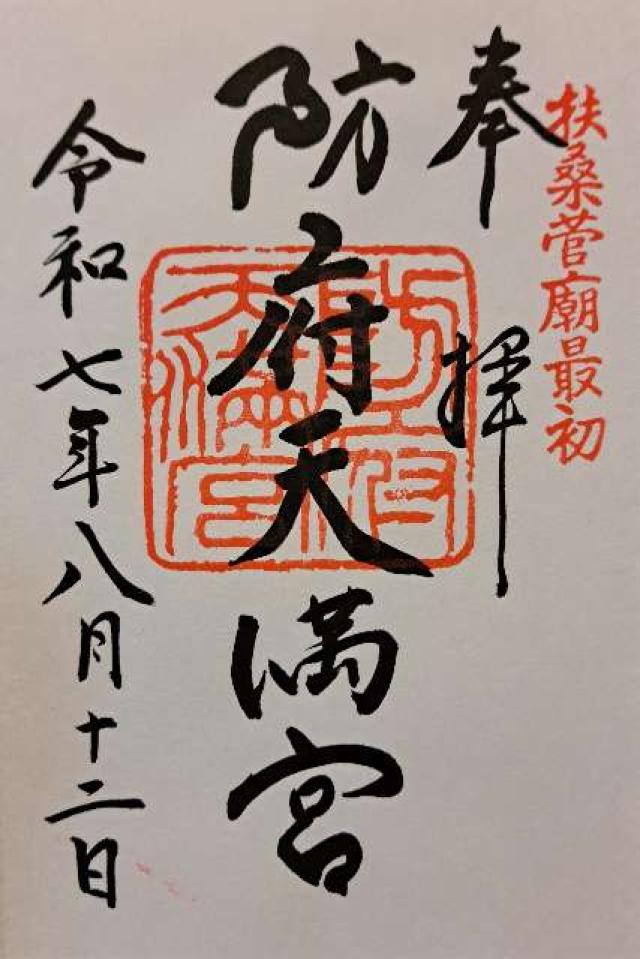 扶桑菅廟最初
奉拝
防府天満宮
防府天満宮
令和七年八月十二日